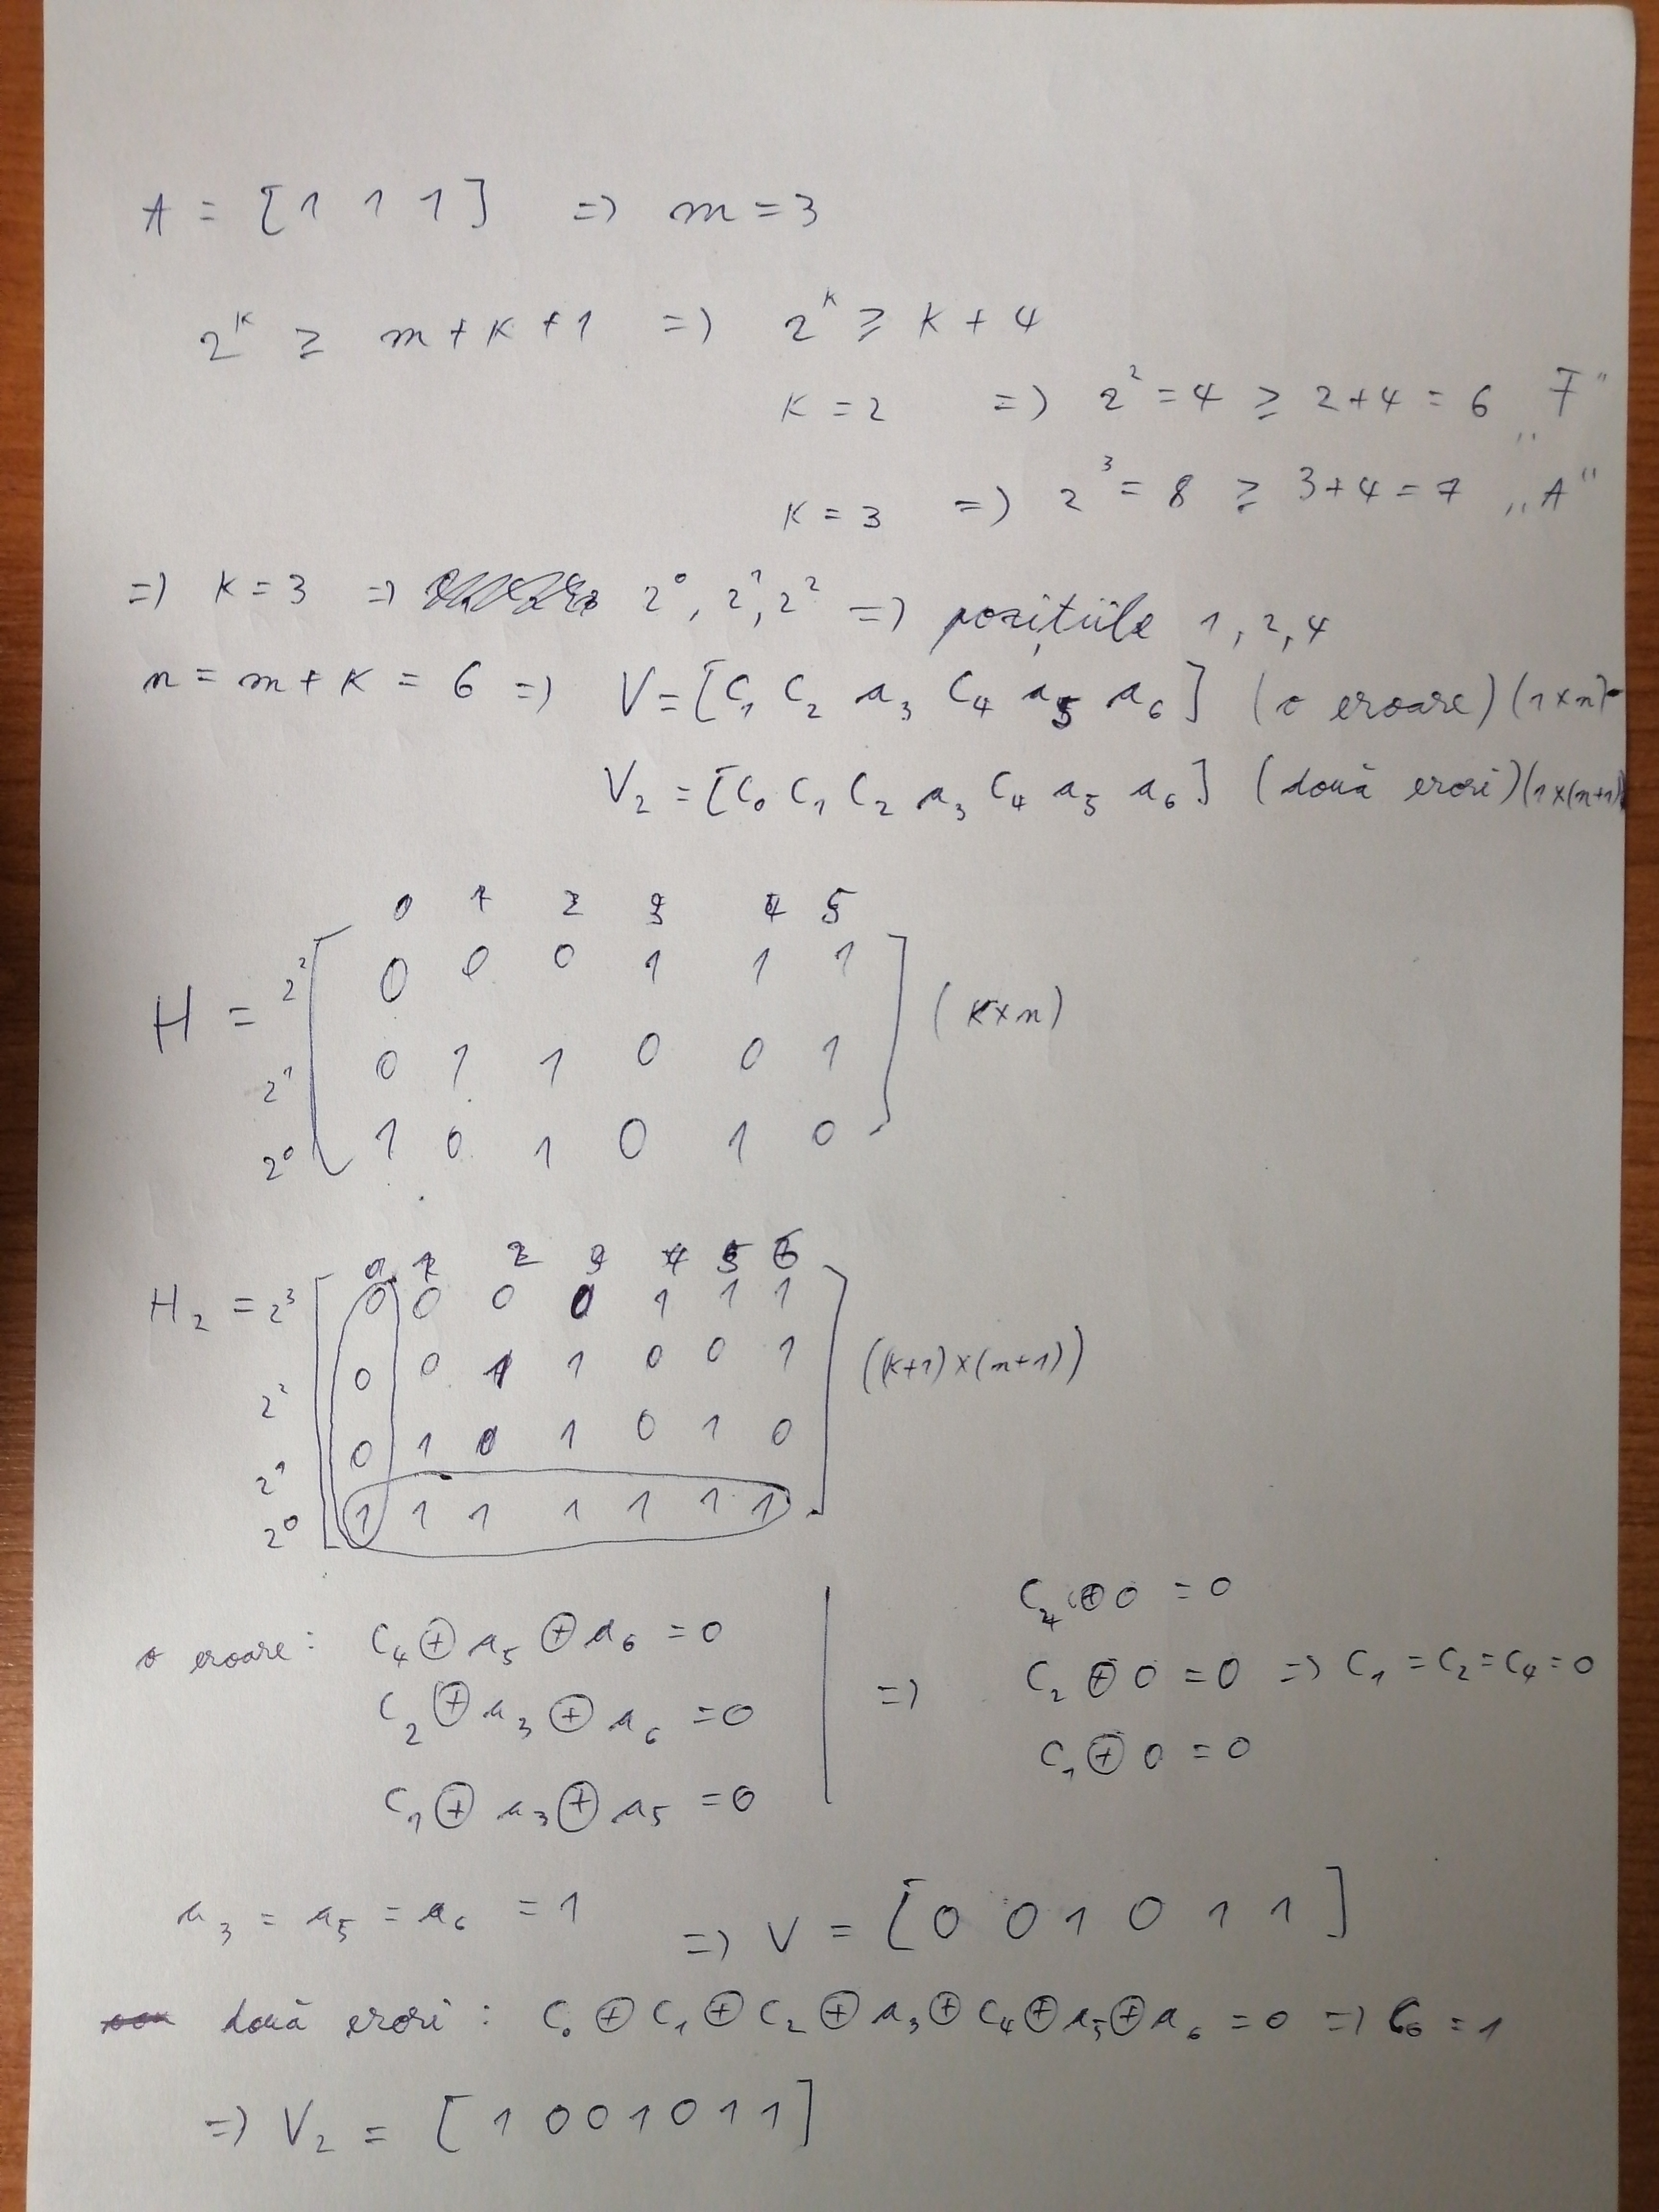 A = [1 1 1] => m = 3
2^k ≥ m + k + 1 => 2^k ≥ k + 4
k = 2 => 2² = 4 ≥ 2+4 = 6 „F”
k = 3 => 2³ = 8 ≥ 3+4 = 7 „A”
=> k = 3 => 2⁰, 2¹, 2² => pozițiile 1, 2, 4
n = m + k = 6 => V = [C₁ C₂ a₃ C₄ a₅ a₆] (o eroare) (1×n)
V₂ = [C₀ C₁ C₂ a₃ C₄ a₅ a₆] (două erori) (1×(n+1)
0 1 2 3 4 5
H = 2² [0 0 0 1 1 1] (k×n)
2¹ 0 1 1 0 0 1
2⁰ 1 0 1 0 1 0
0 1 2 3 4 5 6
H₂ = 2³ [0 0 0 0 1 1 1]
2² 0 0 1 1 0 0 1 ((k+1)×(n+1))
2¹ 0 1 0 1 0 1 0
2⁰ 1 1 1 1 1 1 1
o eroare: C₄ ⊕ a₅ ⊕ a₆ = 0
C₂ ⊕ a₃ ⊕ a₆ = 0
C₁ ⊕ a₃ ⊕ a₅ = 0
=>
C₄ ⊕ 0 = 0
C₂ ⊕ 0 = 0 => C₁ = C₂ = C₄ = 0
C₁ ⊕ 0 = 0
a₃ = a₅ = a₆ = 1 => V = [0 0 1 0 1 1]
două erori: C₀ ⊕ C₁ ⊕ C₂ ⊕ a₃ ⊕ C₄ ⊕ a₅ ⊕ a₆ = 0 => C₀ = 1
=> V₂ = [1 0 0 1 0 1 1]